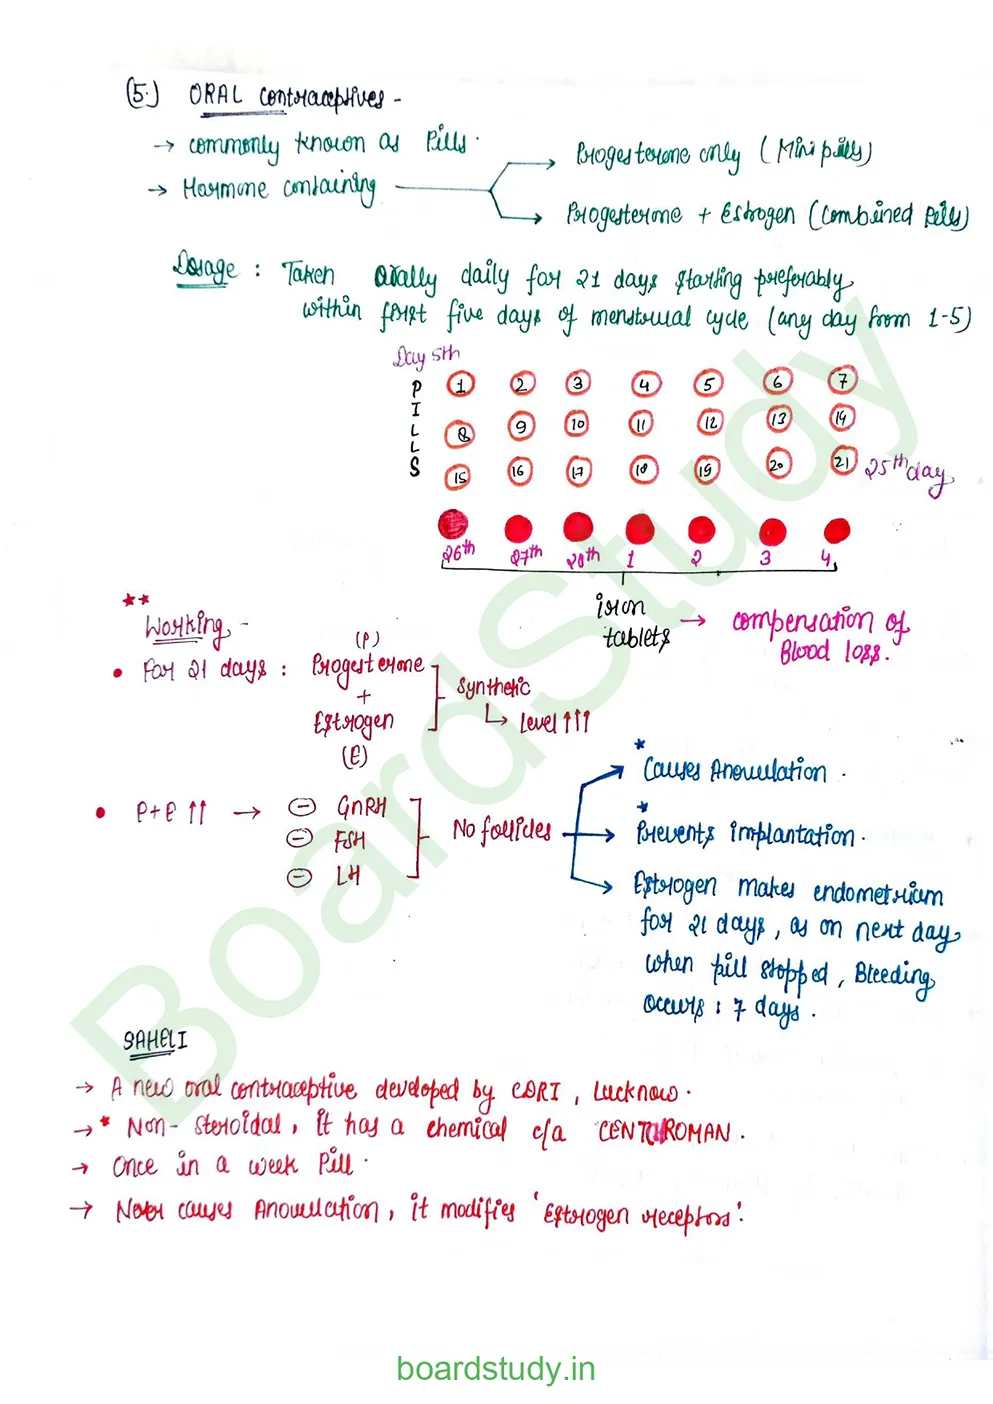 (5.) ORAL Contraceptives -
→ Commonly known as Pills.
→ Hormone containing
→ Progesterone only (Mini pills)
→ Progesterone + Estrogen (Combined Pills)
Dosage : Taken Orally daily for 21 days starting preferably
within first five days of menstrual cycle (any day from 1-5)
Day 5th
PILLS
1 2 3 4 5 6 7
8 9 10 11 12 13 14
15 16 17 18 19 20 21 25th day
26th 27th 28th 1 2 3 4
iron tablets → Compensation of
Blood loss.
** Working -
(P)
• For 21 days : Progesterone
+
Estrogen
(E)
Synthetic
↳ Level ↑↑↑
• P+E ↑↑ → ⊖ GnRH
⊖ FSH
⊖ LH
No follicles
* Causes Anovulation.
* Prevents implantation.
→ Estrogen makes endometrium
for 21 days, as on next day
when pill stopped, Bleeding
occurs : 7 days.
SAHELI
→ A new oral contraceptive developed by CDRI, Lucknow.
→ * Non-Steroidal, it has a chemical c/a CENTCHROMAN.
→ Once in a week Pill.
→ Never causes Anovulation, it modifies 'Estrogen receptors'.
BoardStudy
boardstudy.in